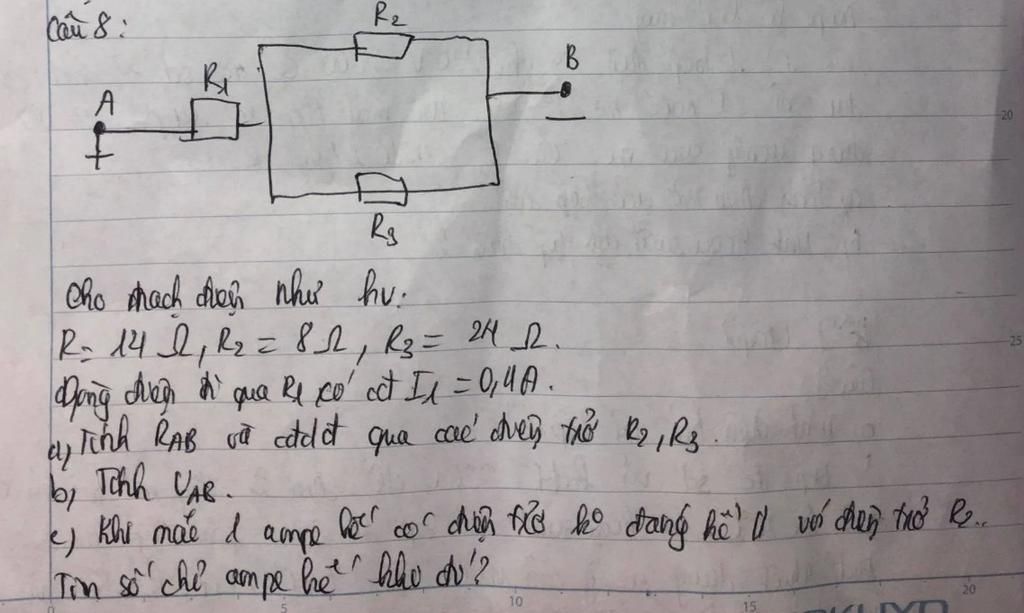 Câu 8:
R2
R1
A
B
+
−
R3
Cho mạch điện như hv:
R = 14 Ω, R2 = 8 Ω, R3 = 24 Ω.
Dòng điện đi qua R1 có cđ I1 = 0,4A.
a) Tính RAB và cđdđ qua các điện trở R2, R3.
b) Tính UAB.
c) Khi mắc 1 ampe kế có điện trở ko đáng kể // với điện trở R2.
Tìm số chỉ ampe kế khi đó?
20
25
5
10
15
20